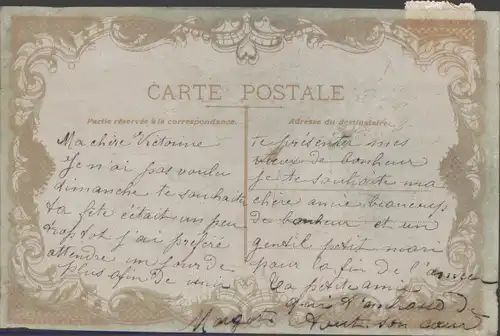 CARTE POSTALE
Partie réservée à la correspondance.
Ma chère Victorine
Je n'ai pas voulu
dimanche te souhaiter
ta fête c'était un peu
trop tot j'ai préféré
attendre un jour de
plus afin de venir
Adresse du destinataire.
te présenter mes
vœux de bonheur
je te souhaite ma
chère amie beaucoup
de bonheur et un
gentil petit mari
pour la fin de l'année
Ta petite amie
qui t'embrasse de
tout son cœur